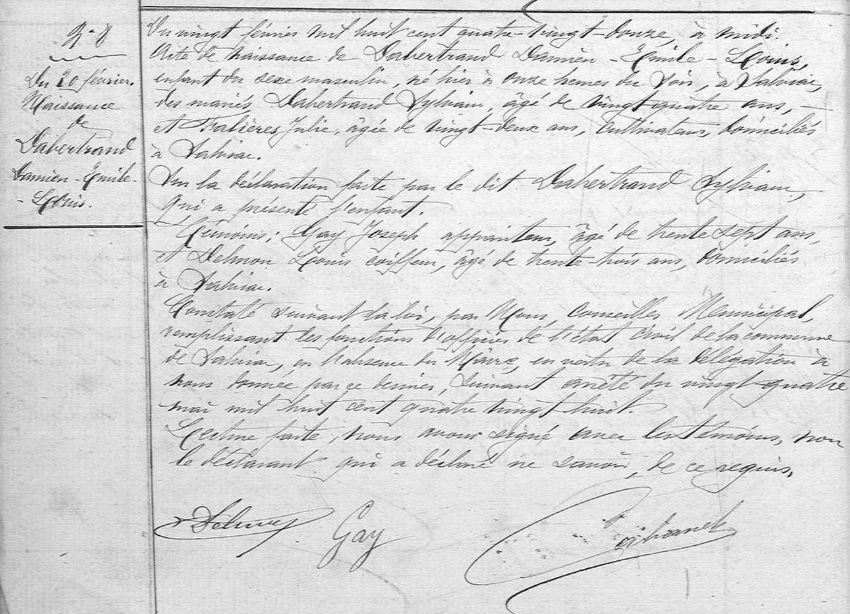 N° 8
Du 20 février.
Naissance
de
Dabertrand
Damien-Emile-
-Louis.
Du vingt février mil huit cent quatre-vingt-douze, à midi
Acte de Naissance de Dabertrand Damien-Emile-Louis,
enfant du sexe masculin, né hier à onze heures du soir, à
des mariés Dabertrand Sylvain, âgé de vingt quatre ans,-
et Falières Julie, âgée de vingt-deux ans, cultivateurs, domiciliés
à
Sur la déclaration faite par le dit Dabertrand Sylvain,
qui a présenté l'enfant.
Témoins: Gay Joseph appariteur, âgé de trente sept ans,
et Delmon Louis coiffeur, âgé de trente-trois ans, domiciliés
à
Constaté suivant la loi, par Nous, Conseiller Municipal,
remplissant les fonctions d'officier de l'état civil de la commune
de en l'absence du Maire, en vertu de la délégation à
nous donnée par ce dernier, suivant arrêté du vingt-quatre
mai mil huit cent quatre vingt huit.
Lecture faite, nous avons signé avec les témoins, non
le déclarant qui a déclaré ne savoir, de ce requis.
Gay